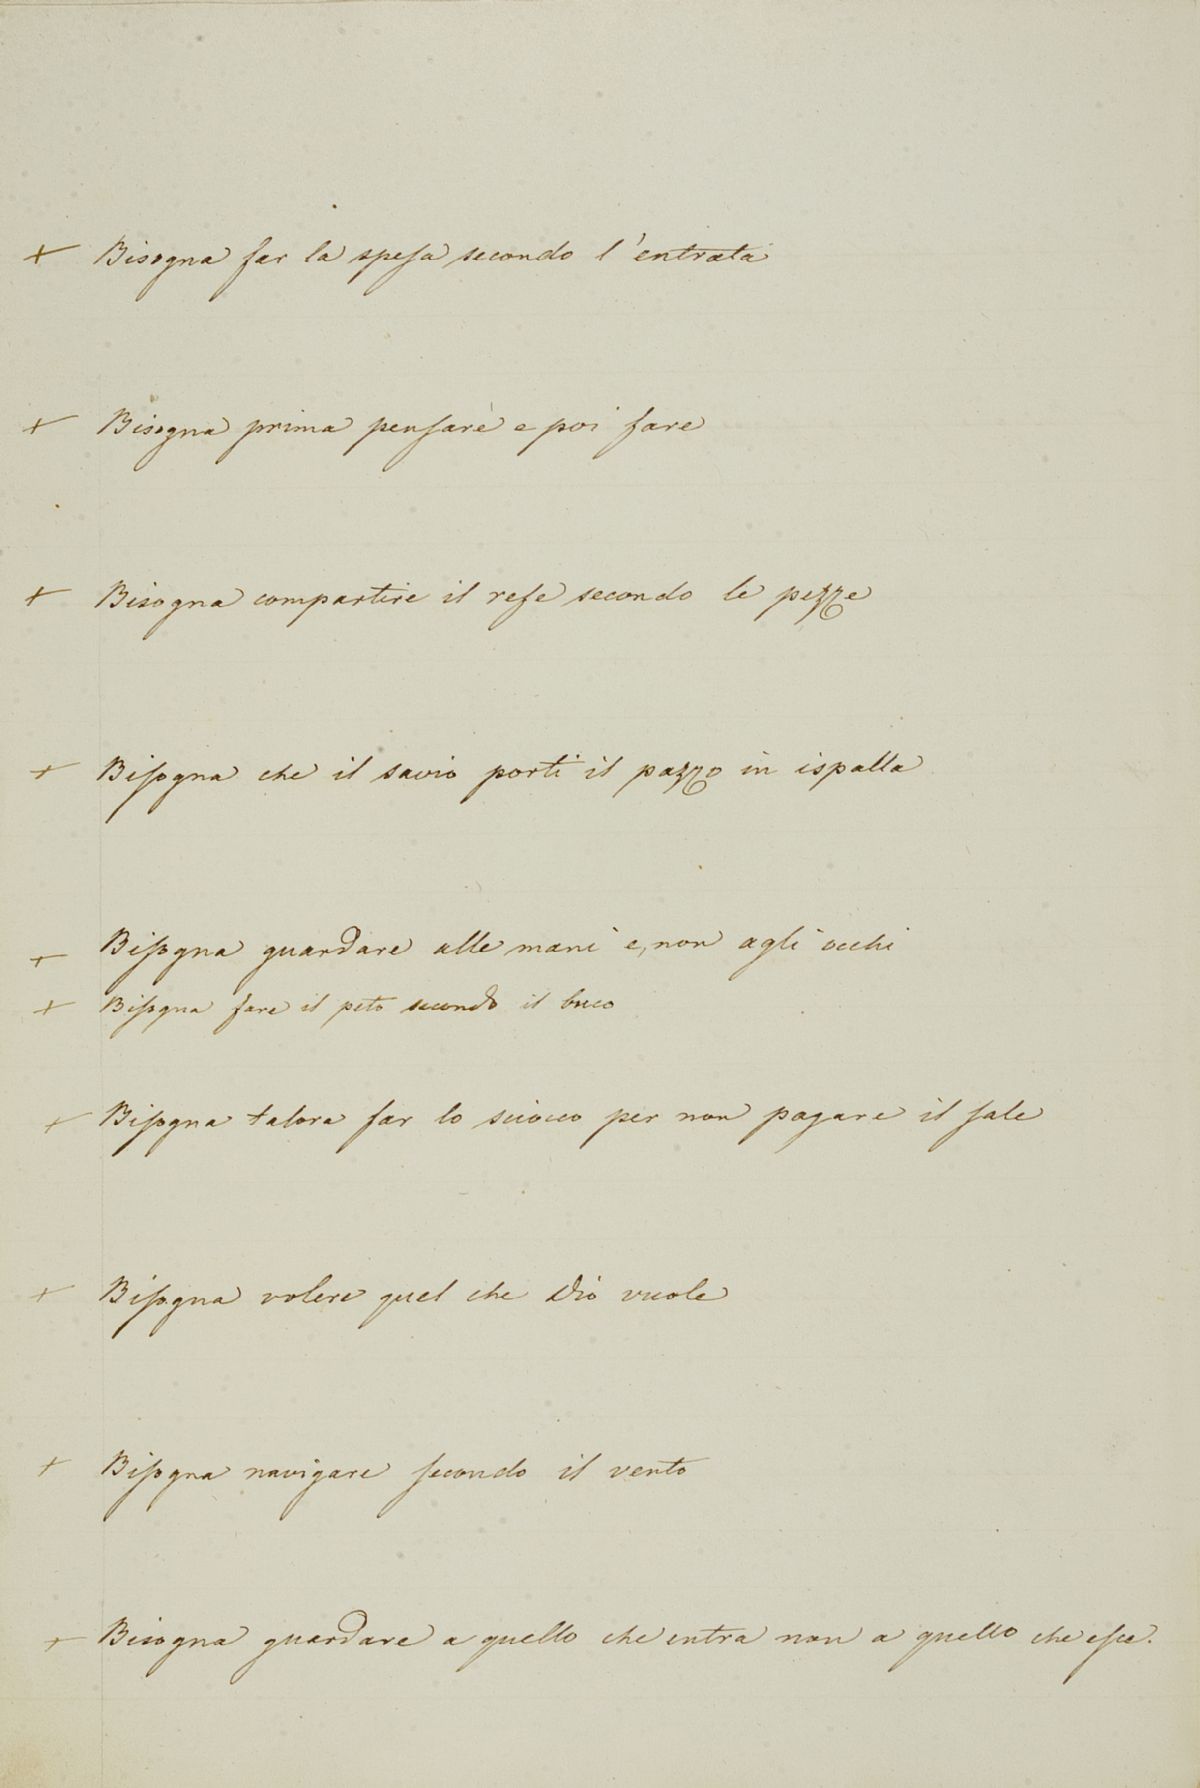 + Bisogna far la spesa secondo l'entrata
+ Bisogna prima pensare e poi fare
+ Bisogna compartire il refe secondo le pezze
+ Bisogna che il savio porti il pazzo in ispalla
+ Bisogna guardare alle mani e, non agli occhi
+ Bisogna fare il peto secondo il buco
+ Bisogna talora far lo sciocco per non pagare il sale
+ Bisogna volere quel che Dio vuole
+ Bisogna navigare secondo il vento
+ Bisogna guardare a quello che entra non a quello che esce.